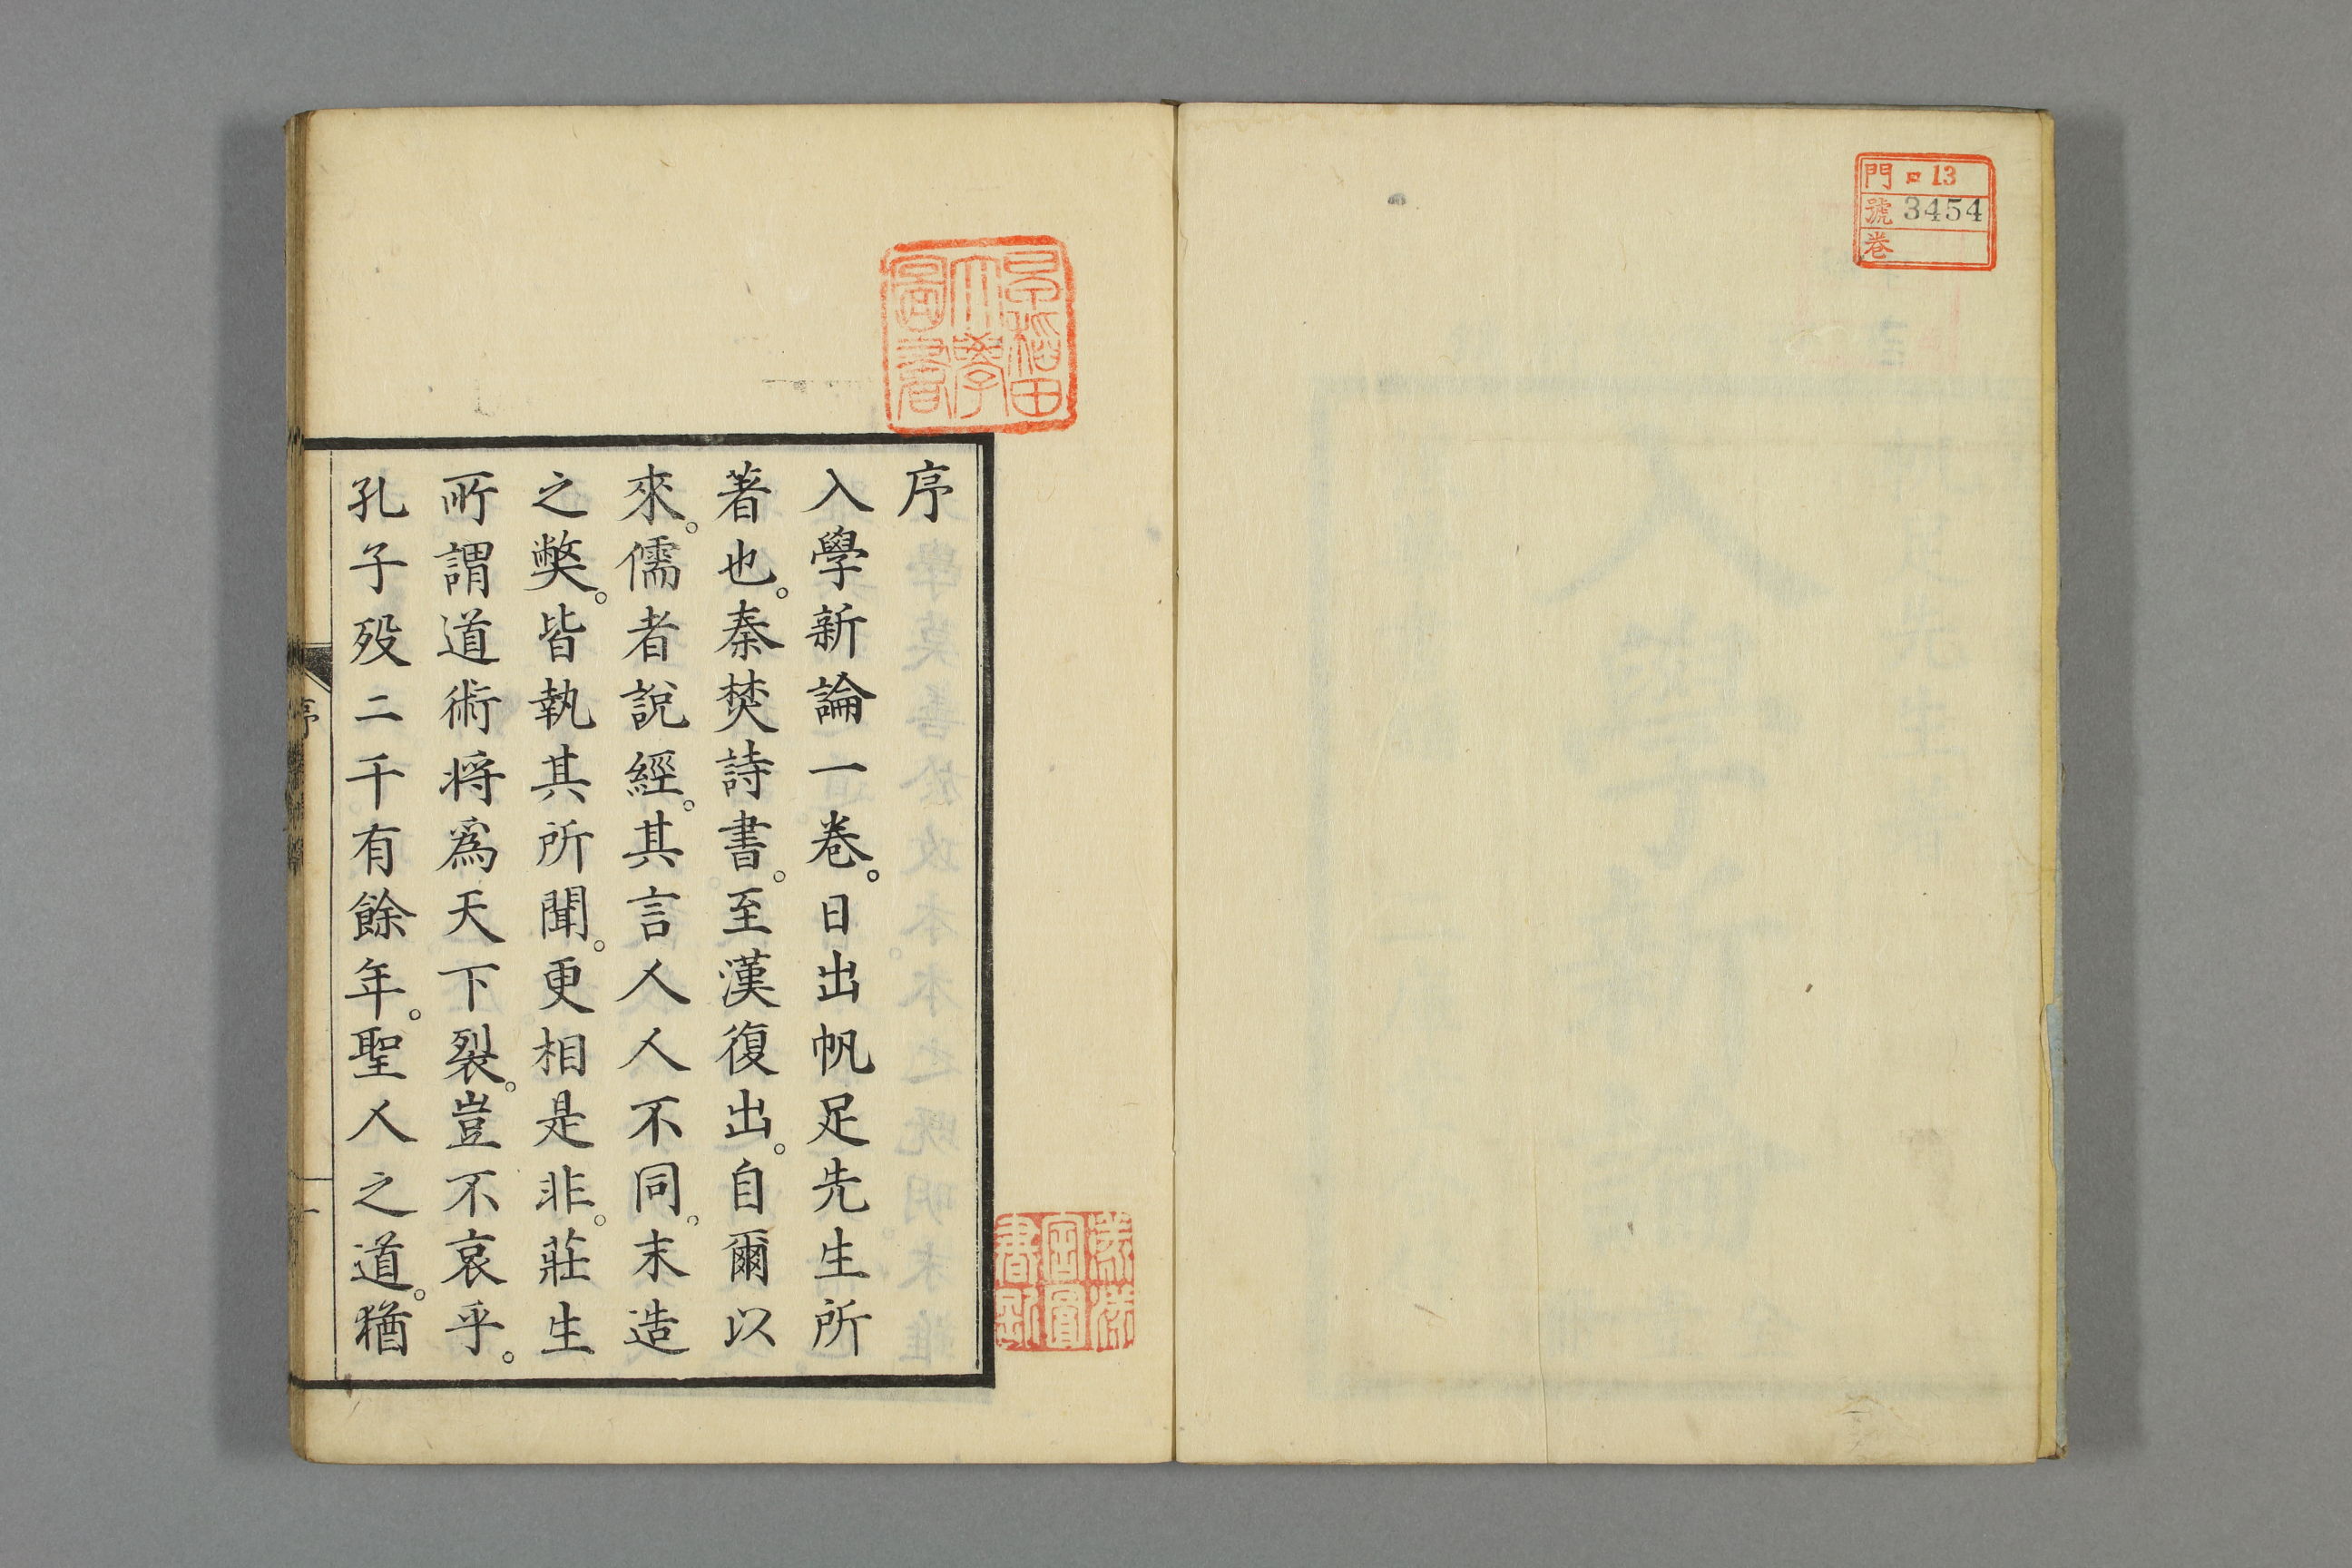 門 ロ 13
號 3454
卷
早稲田
大學
圖書
序
入學新論一卷。日出帆足先生所
著也。秦焚詩書。至漢復出。自爾以
來。儒者說經。其言人人不同。末造
之獘。皆執其所聞。更相是非。莊生
所謂道術将爲天下裂。豈不哀乎。
孔子歿二千有餘年。聖人之道。猶
序
一